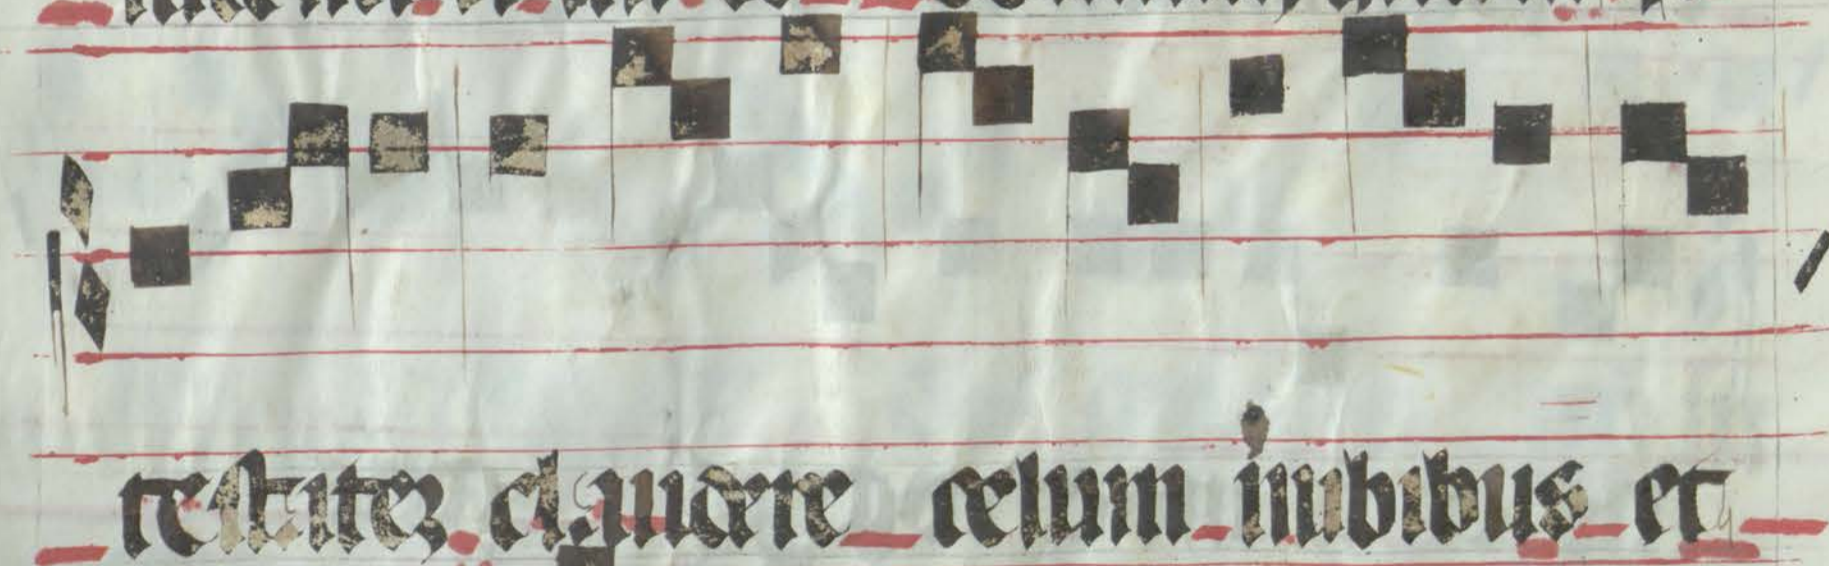 testatez claudere celum inubibus et